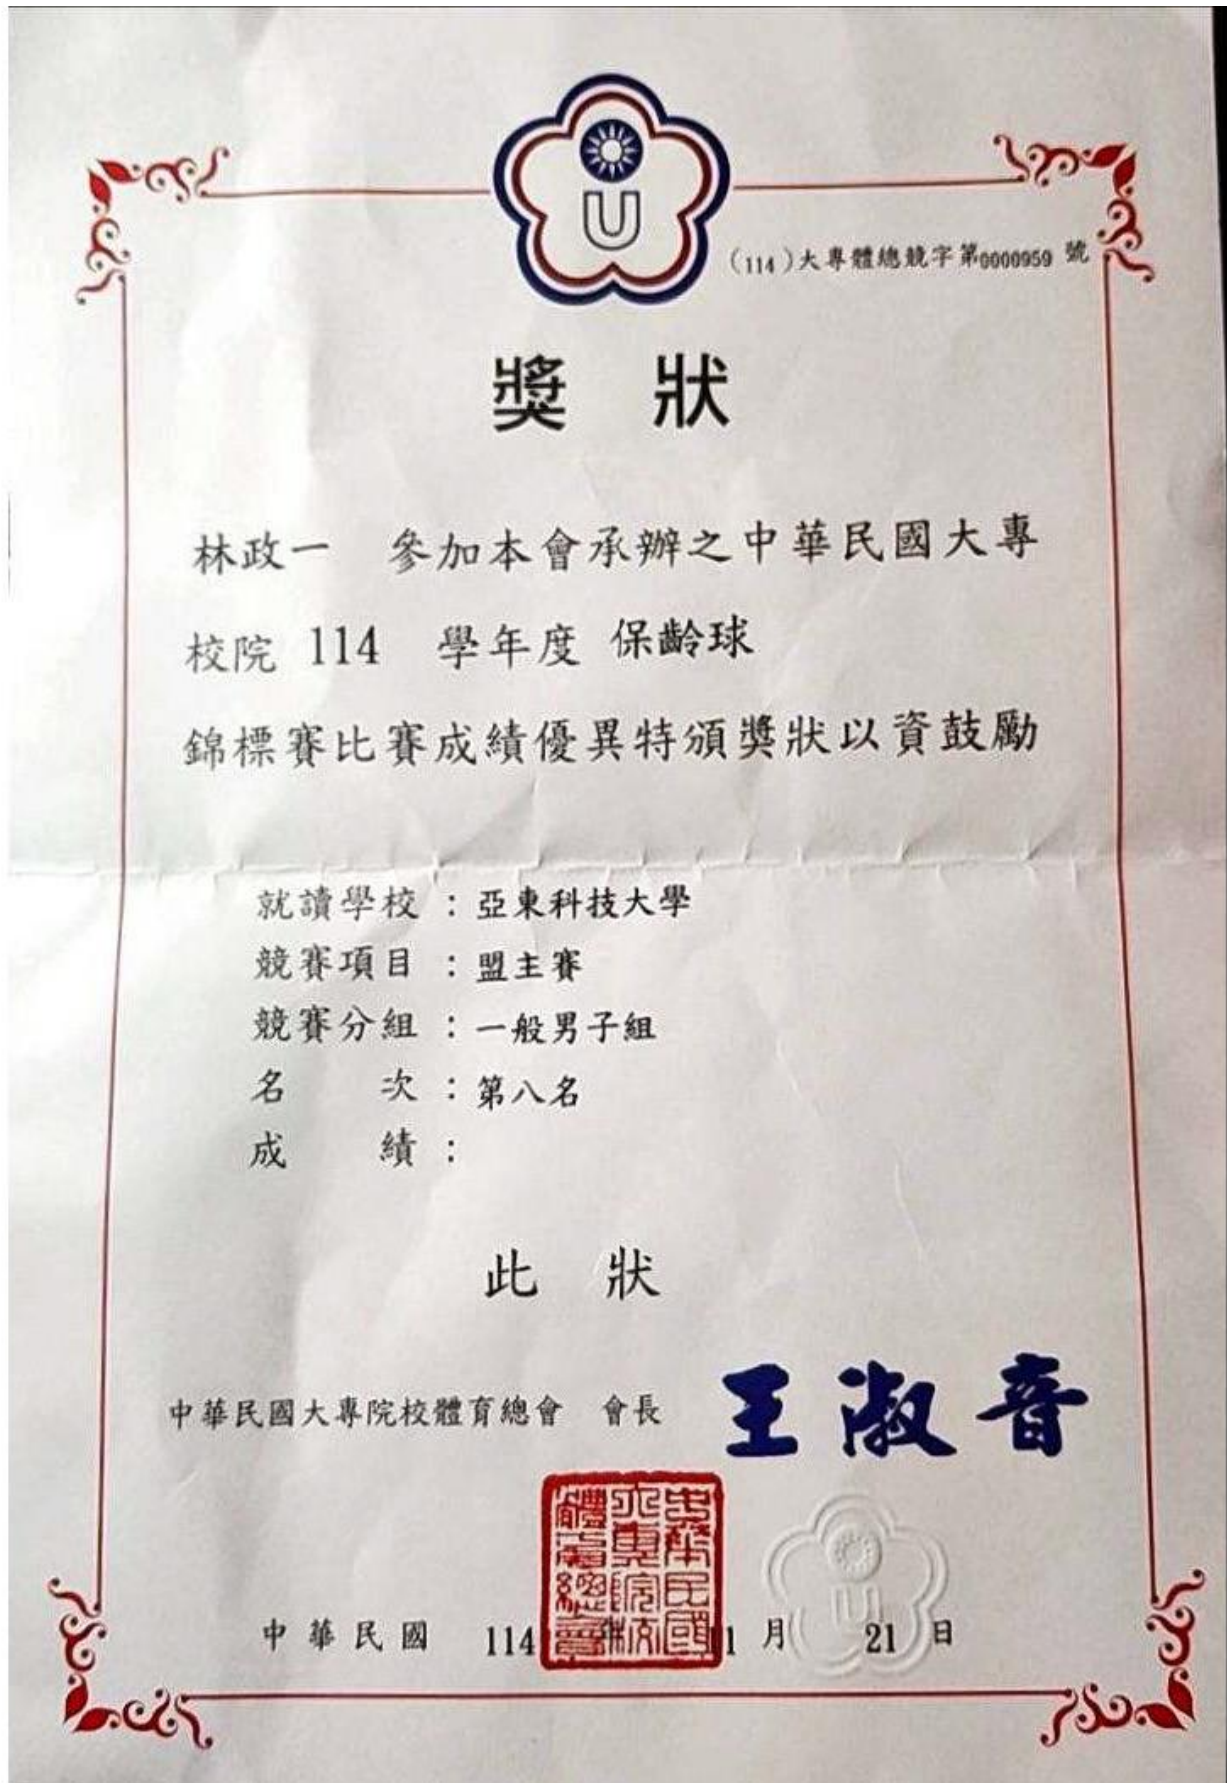 U
（114）大專體總競字第0000959 號
獎 狀
林政一 參加本會承辦之中華民國大專
校院 114 學年度 保齡球
錦標賽比賽成績優異特頒獎狀以資鼓勵
就讀學校：亞東科技大學
競賽項目：盟主賽
競賽分組：一般男子組
名 次：第八名
成 績：
此 狀
中華民國大專院校體育總會 會長 王淑音
中華民國大專院校體育總會
中華民國 114 年 11 月 21 日
U